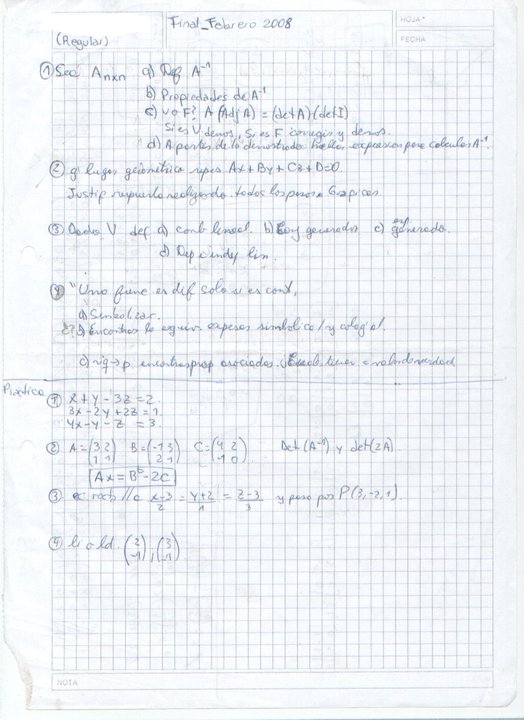 Final_Febrero 2008
HOJA
(Regular)
FECHA
① Sea Anxn a) Def A⁻¹
b) Propiedades de A⁻¹
c) V o F? A (Adj A) = (det A) (det I)
Si es V demos, Si es F corregir y demos.
d) A partir de lo demostrado hallar expresion para calcular A⁻¹.
② lugar geometrico repres Ax + By + Cz + D = 0.
Justif respuesta realizando todos los pasos Graficar
③ Dado V def a) comb lineal. b) Conj generador c) generado.
d) Dep e indep lin.
④ "Una func es def solo si es cont,
a) Simbolizar.
b) Encontrar la expres simbolica / y coloq.
c) ~q → p encontrar prop asociadas. tienen = valor de verdad
Práctica
① x + y - 3z = 2
3x - 2y + 2z = 1
4x - y - z = 3.
② A = (3 2 / 1 1) B = (-1 3 / 2 1) C = (4 2 / -1 0) Det (A⁻¹) y det(2A)
Ax = Bᵗ - 2C
③ ec recta // a x-3/2 = y+2/1 = z-3/3 y pasa por P(3,-2,1)
④ li o ld. (2 / -1), (3 / -1)
NOTA